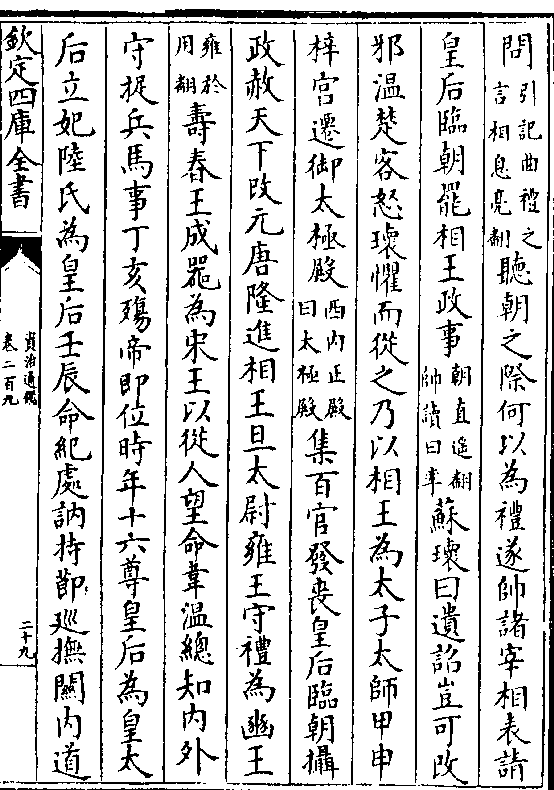 問引記曲禮之言相息亮翻聽朝之際何以為禮遂帥諸宰相表請
皇后臨朝罷相王政事朝直遥翻帥讀曰率蘇瓌曰遺詔豈可改
邪温楚客怒瓌懼而從之乃以相王為太子太師甲申
梓宮遷御太極殿西内正殿曰太極殿集百官發喪皇后臨朝攝
政赦天下改元唐隆進相王旦太尉雍王守禮為豳王
雍於用翻壽春王成器為宋王以從人望命韋温總知内外
守捉兵馬事丁亥殤帝即位時年十六尊皇后為皇太
后立妃陸氏為皇后壬辰命紀處訥持節廵撫關内道
欽定四庫全書
資治通鑑
卷二百九
二十九